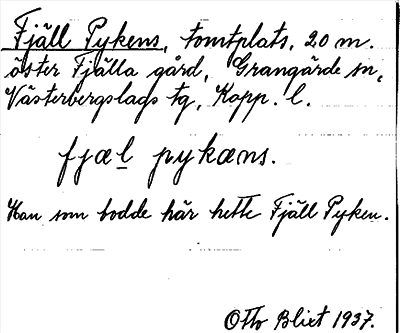 Fjäll Pykens, tomtplats, 20 m.
öster Fjälla gård, Grangärde sn,
Västerbergslags tg, Kopp. l.
fjæl pykæns.
Han som bodde här hette Fjäll Pyken.
Otto Blixt 1937.